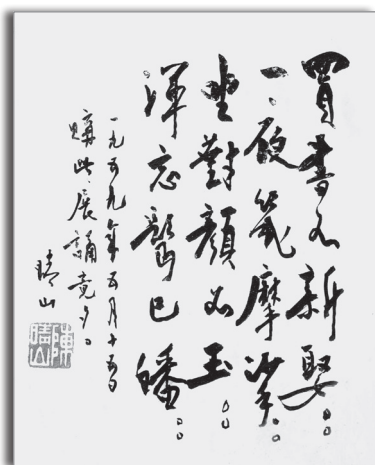 買書如新娶。
一夜幾摩挲。
坐對顏如玉。
渾忘鬢已皤。
一九五九年五月十五日
購此展誦竟夕。
晴山
陳晴山